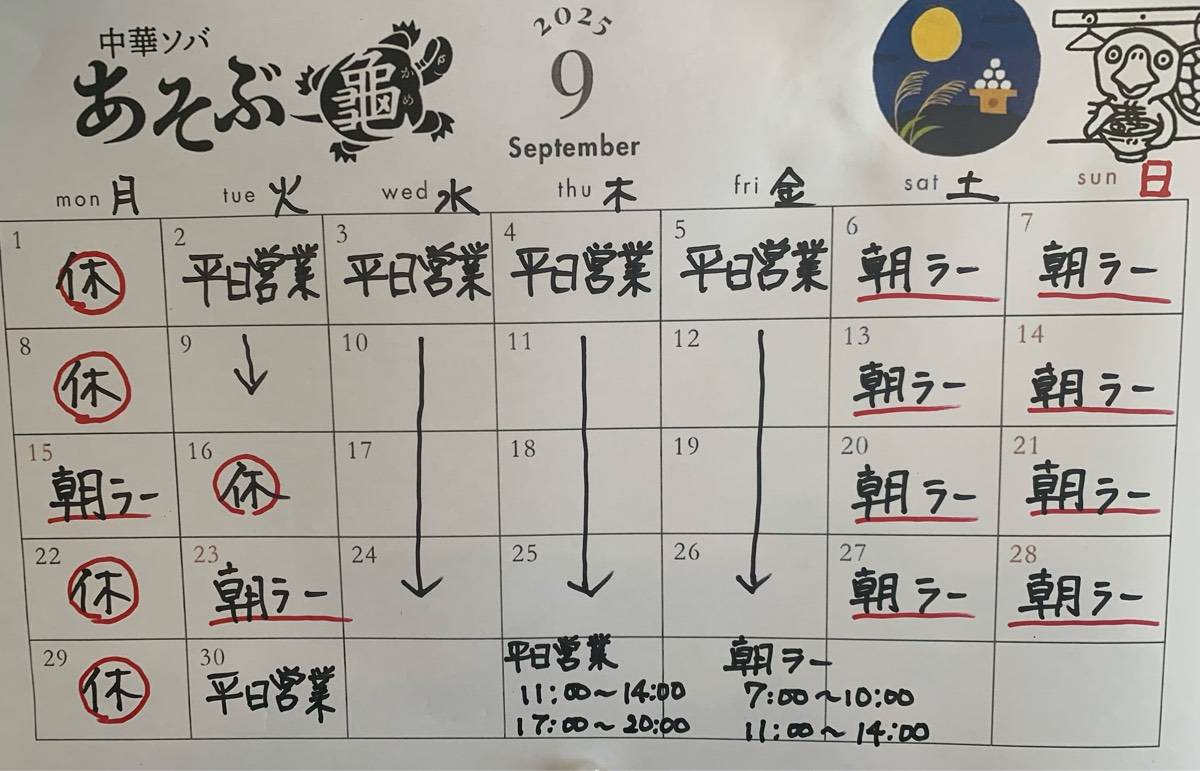 中華ソバ
あそぶ龜
かめ
2025
9
September
mon 月 tue 火 wed 水 thu 木 fri 金 sat 土 sun 日
1 2 3 4 5 6 7
休 平日営業 平日営業 平日営業 平日営業 朝ラー 朝ラー
8 9 10 11 12 13 14
休 朝ラー 朝ラー
15 16 17 18 19 20 21
朝ラー 休 朝ラー 朝ラー
22 23 24 25 26 27 28
休 朝ラー 朝ラー 朝ラー
29 30
休 平日営業
平日営業 朝ラー
11:00〜14:00 7:00〜10:00
17:00〜20:00 11:00〜14:00